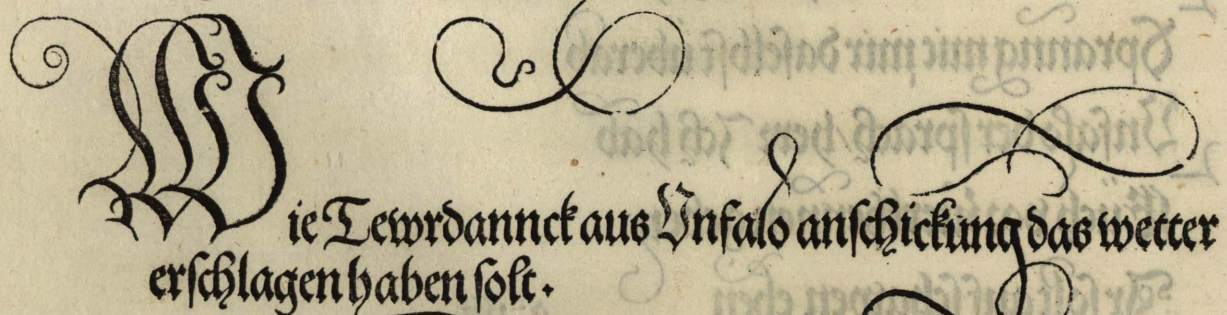 Wie Tewrdannck aus Vnfalo anschickung das wetter
erschlagen haben solt.